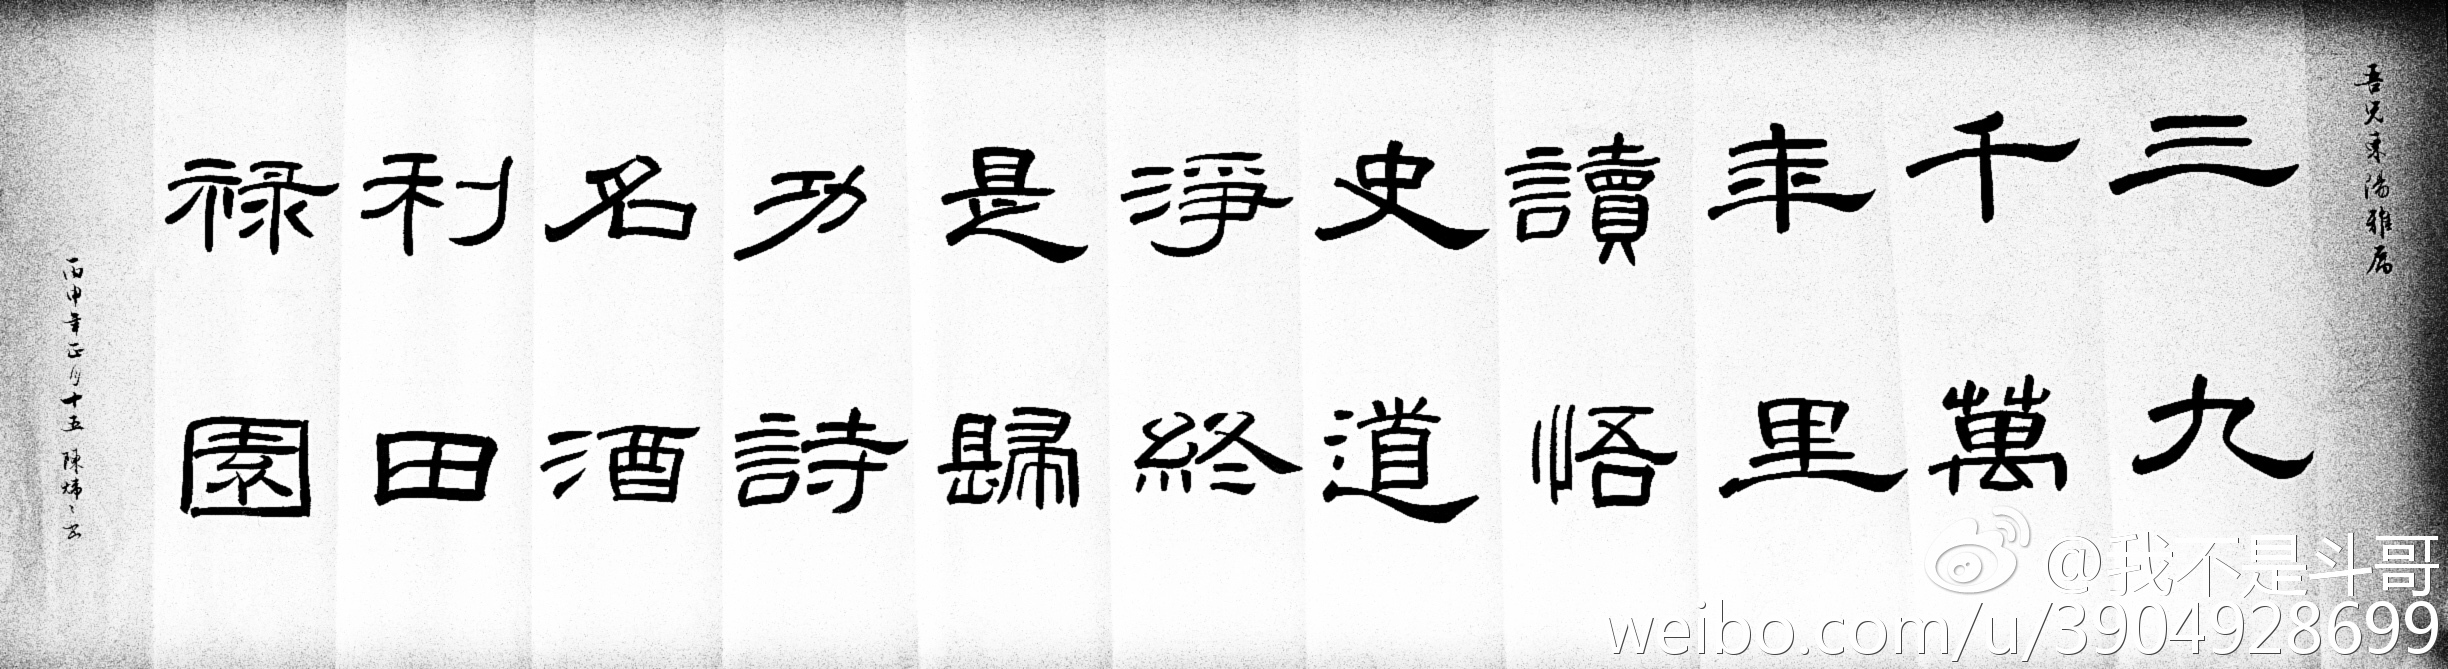 吾兄東陽雅屬
三千年讀史淨是功名利禄
九萬里悟道終歸詩酒田園
丙申年正月十五 陳煒
@我不是斗哥
weibo.com/u/3904928699